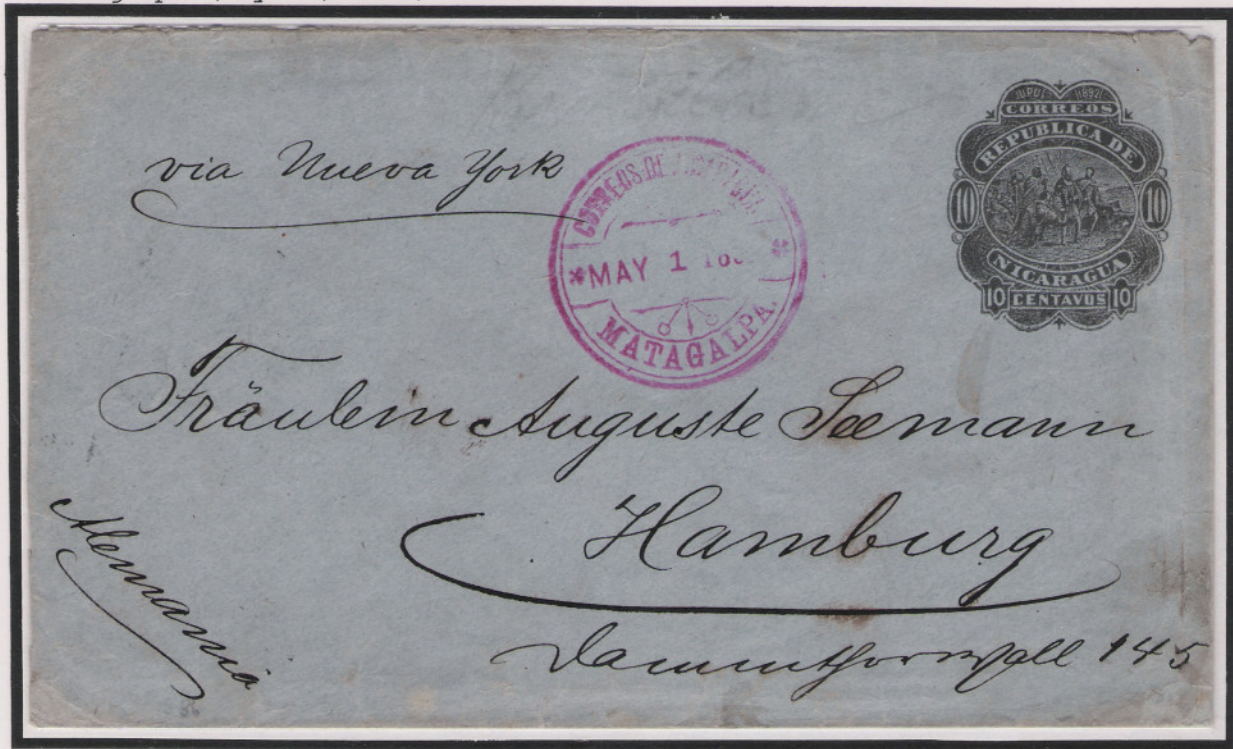 via Nueva York
CORREOS DE
MAY 1
MATAGALPA.
U.P.U. 1892
CORREOS
REPUBLICA DE
10 10
NICARAGUA
10 CENTAVOS 10
Fräulein Auguste Seemann
Hamburg
Alemania
Dammthorwall 145